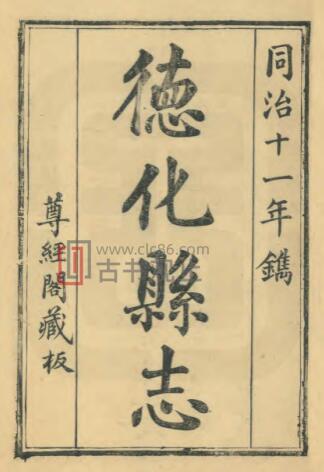 同治十一年鐫
德化縣志
尊經閣藏板
www.clc86.com
古书